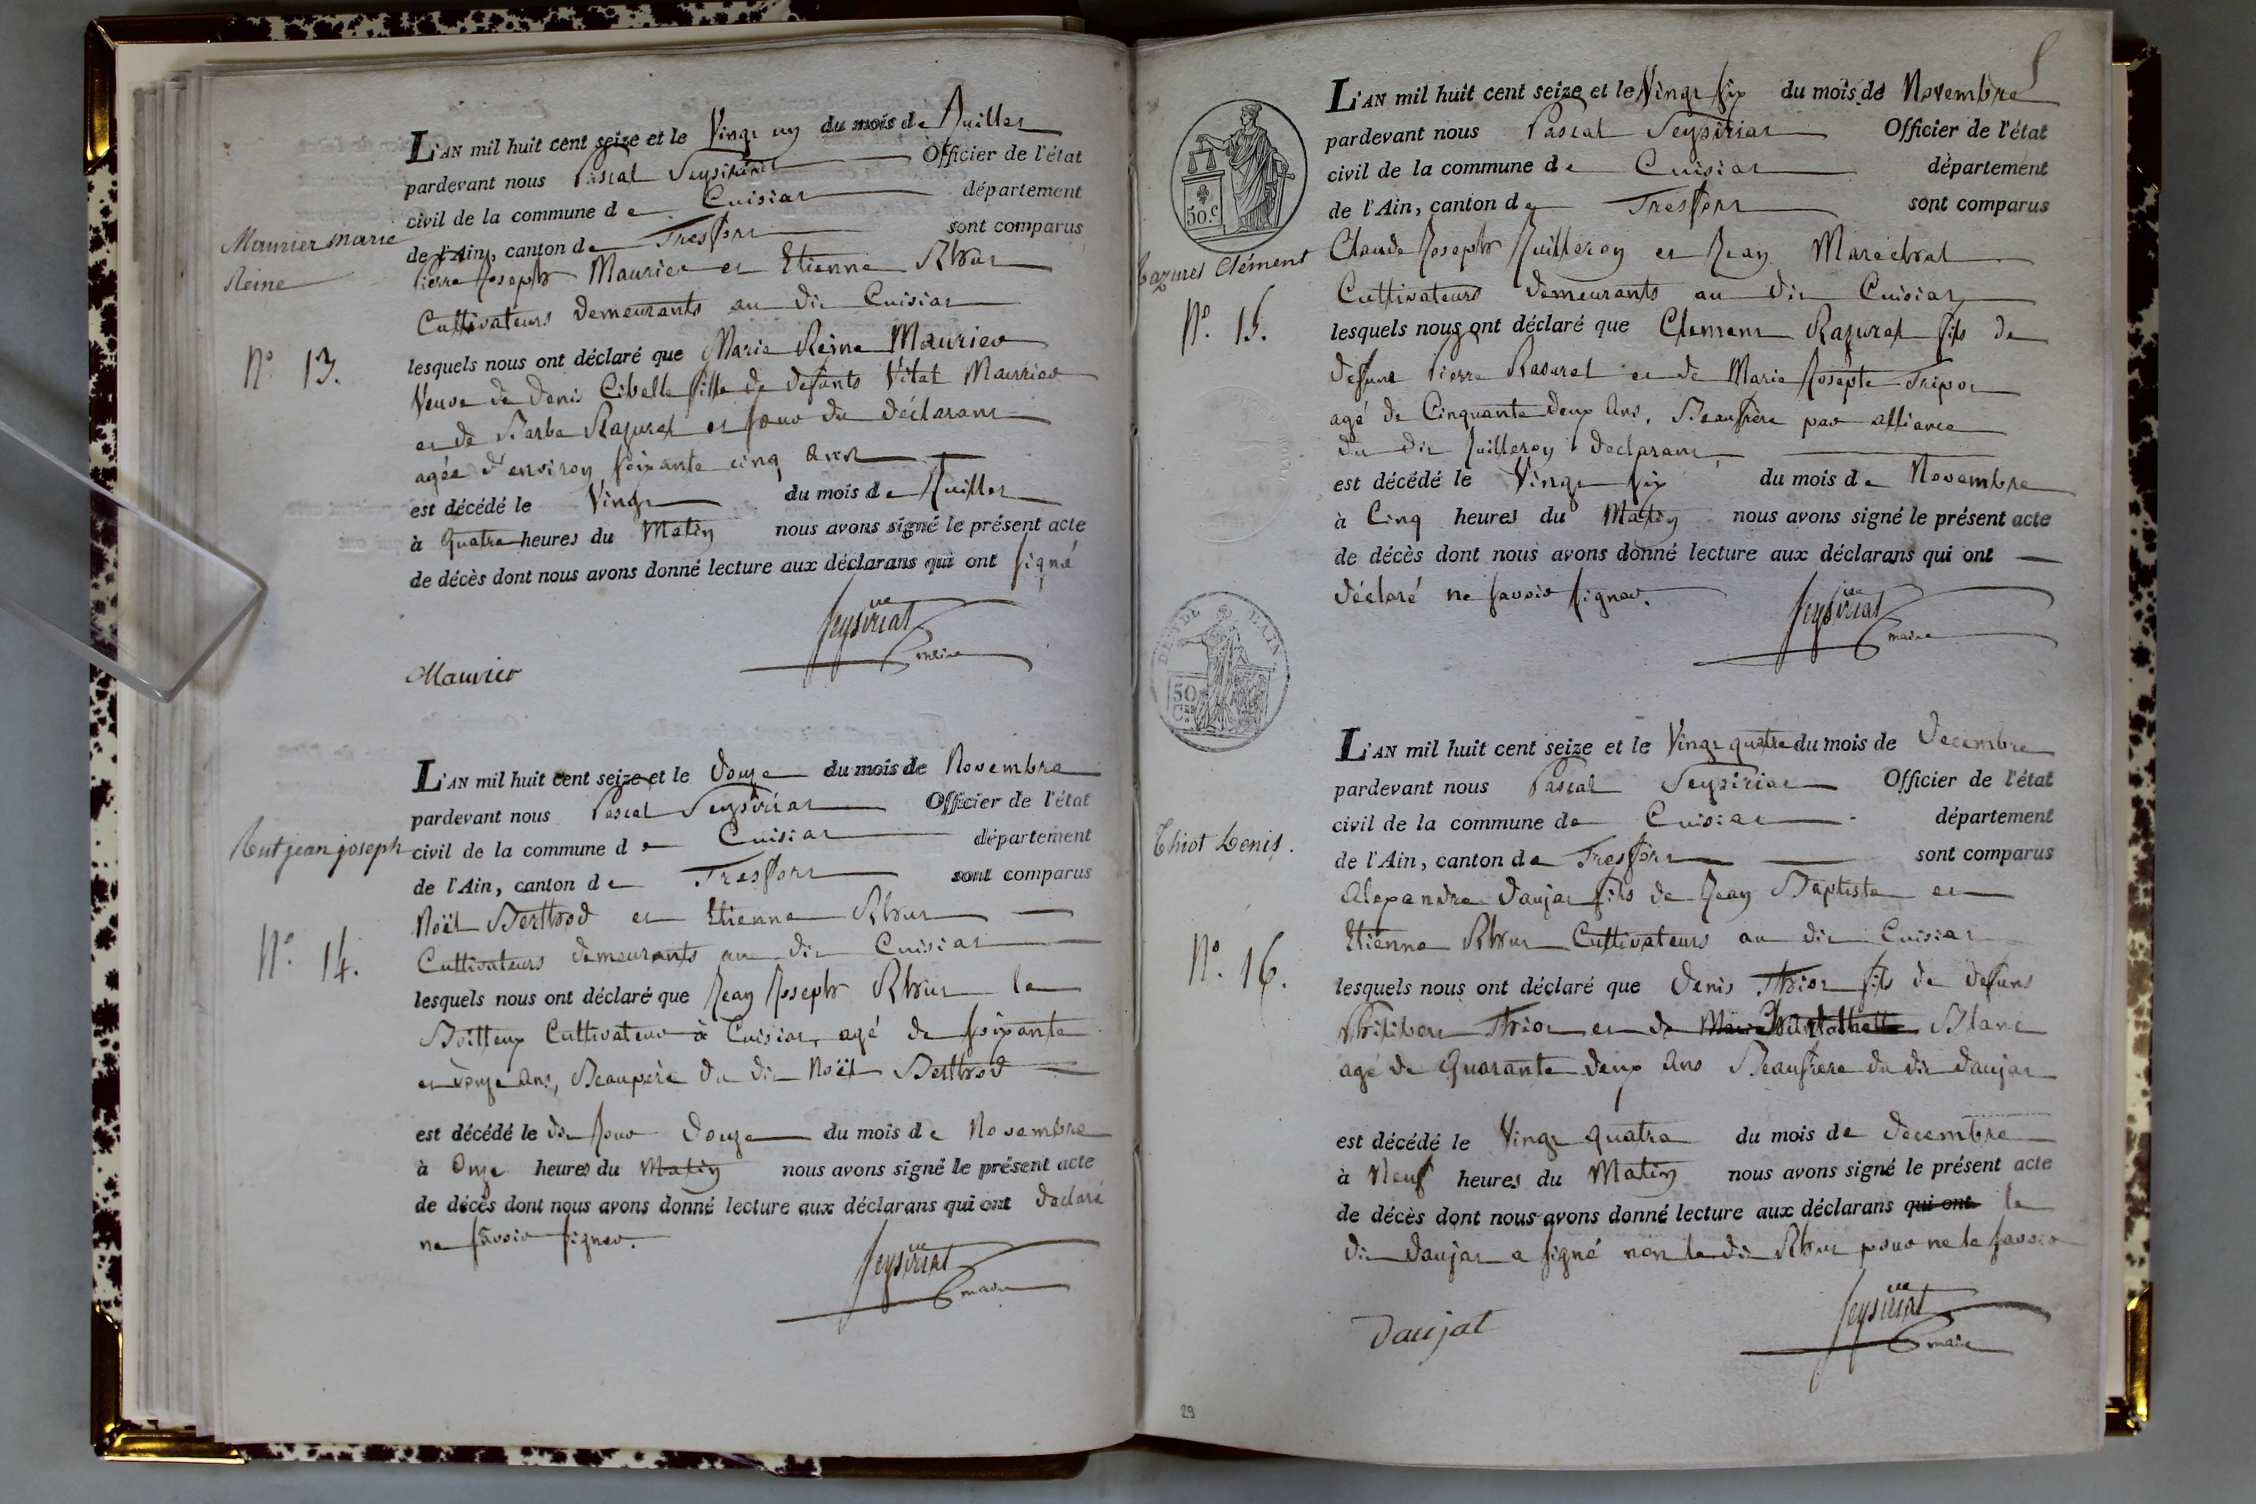 L'AN mil huit cent seize et le Vingt un du mois de Juillet
pardevant nous Pascal Seysiriat Officier de l'état
civil de la commune de Cuisiat département
de l'Ain, canton de Treffort sont comparus
Maurier marie
Reine
Pierre Joseph Maurier et Etienne Rhut
Cultivateurs demeurants au dit Cuisiat
N.° 13.
lesquels nous ont déclaré que Marie Reine Maurier
Veuve de Denis Cibelle fille de defunts Vital Maurier
et de Barbe Razurel et sœur du déclarant
agée d'environ soixante cinq ans
est décédé le Vingt du mois de Juillet
à Quatre heures du Matin nous avons signé le présent acte
de décès dont nous avons donné lecture aux déclarans qui ont signé
Seysiriat
maire
Maurier
L'AN mil huit cent seize et le Douze du mois de Novembre
pardevant nous Pascal Seysiriat Officier de l'état
Rut jean joseph
civil de la commune de Cuisiat département
de l'Ain, canton de Treffort sont comparus
Noël Berthod et Etienne Rhut
N.° 14.
Cultivateurs demeurants au dit Cuisiat
lesquels nous ont déclaré que Jean Joseph Rhut le
Boitteux Cultivateur à Cuisiat, agé de soixante
et douze ans, Beaupère du dit Noël Berthod
est décédé le dit Jour Douze du mois de Novembre
à Onze heures du Matin nous avons signé le présent acte
de décès dont nous avons donné lecture aux déclarans qui ont déclaré
ne savoir signer.
Seysiriat
maire
L'AN mil huit cent seize et le Vingt six du mois de Novembre
pardevant nous Pascal Seysiriat Officier de l'état
civil de la commune de Cuisiat département
de l'Ain, canton de Treffort sont comparus
50.c
Razurel Clément
Claude Joseph Juilleron et Jean Maréchal
Cultivateurs demeurants au dit Cuisiat
N.° 15.
lesquels nous ont déclaré que Clement Razurel fils de
defunt Pierre Rasurel et de Marie Josepte Tripoz
agé de Cinquante deux ans, Beaufrère par alliance
du dit Juilleron déclarant,
est décédé le Vingt six du mois de Novembre
à Cinq heures du Matin nous avons signé le présent acte
de décès dont nous avons donné lecture aux déclarans qui ont
déclaré ne savoir signer.
Seysiriat
maire
DEP. DE L'AIN
50
C.es
L'AN mil huit cent seize et le Vingt quatre du mois de Decembre
pardevant nous Pascal Seysiriat Officier de l'état
civil de la commune de Cuisiat département
Thiot Denis.
de l'Ain, canton de Treffort sont comparus
Alexandre Daujat fils de Jean Baptiste et
Etienne Rhut Cultivateurs au dit Cuisiat
N.° 16.
lesquels nous ont déclaré que Denis Thiot fils de defunt
Philibert Thiot et de Marie Blanc
agé de Quarante deux ans Beaufrere du dit Daujat
est décédé le Vingt quatre du mois de decembre
à Neuf heures du Matin nous avons signé le présent acte
de décès dont nous avons donné lecture aux déclarans qui ont le
dit Daujat a signé non le dit Rhut pour ne le savoir
Seysiriat
maire
Daujat
29